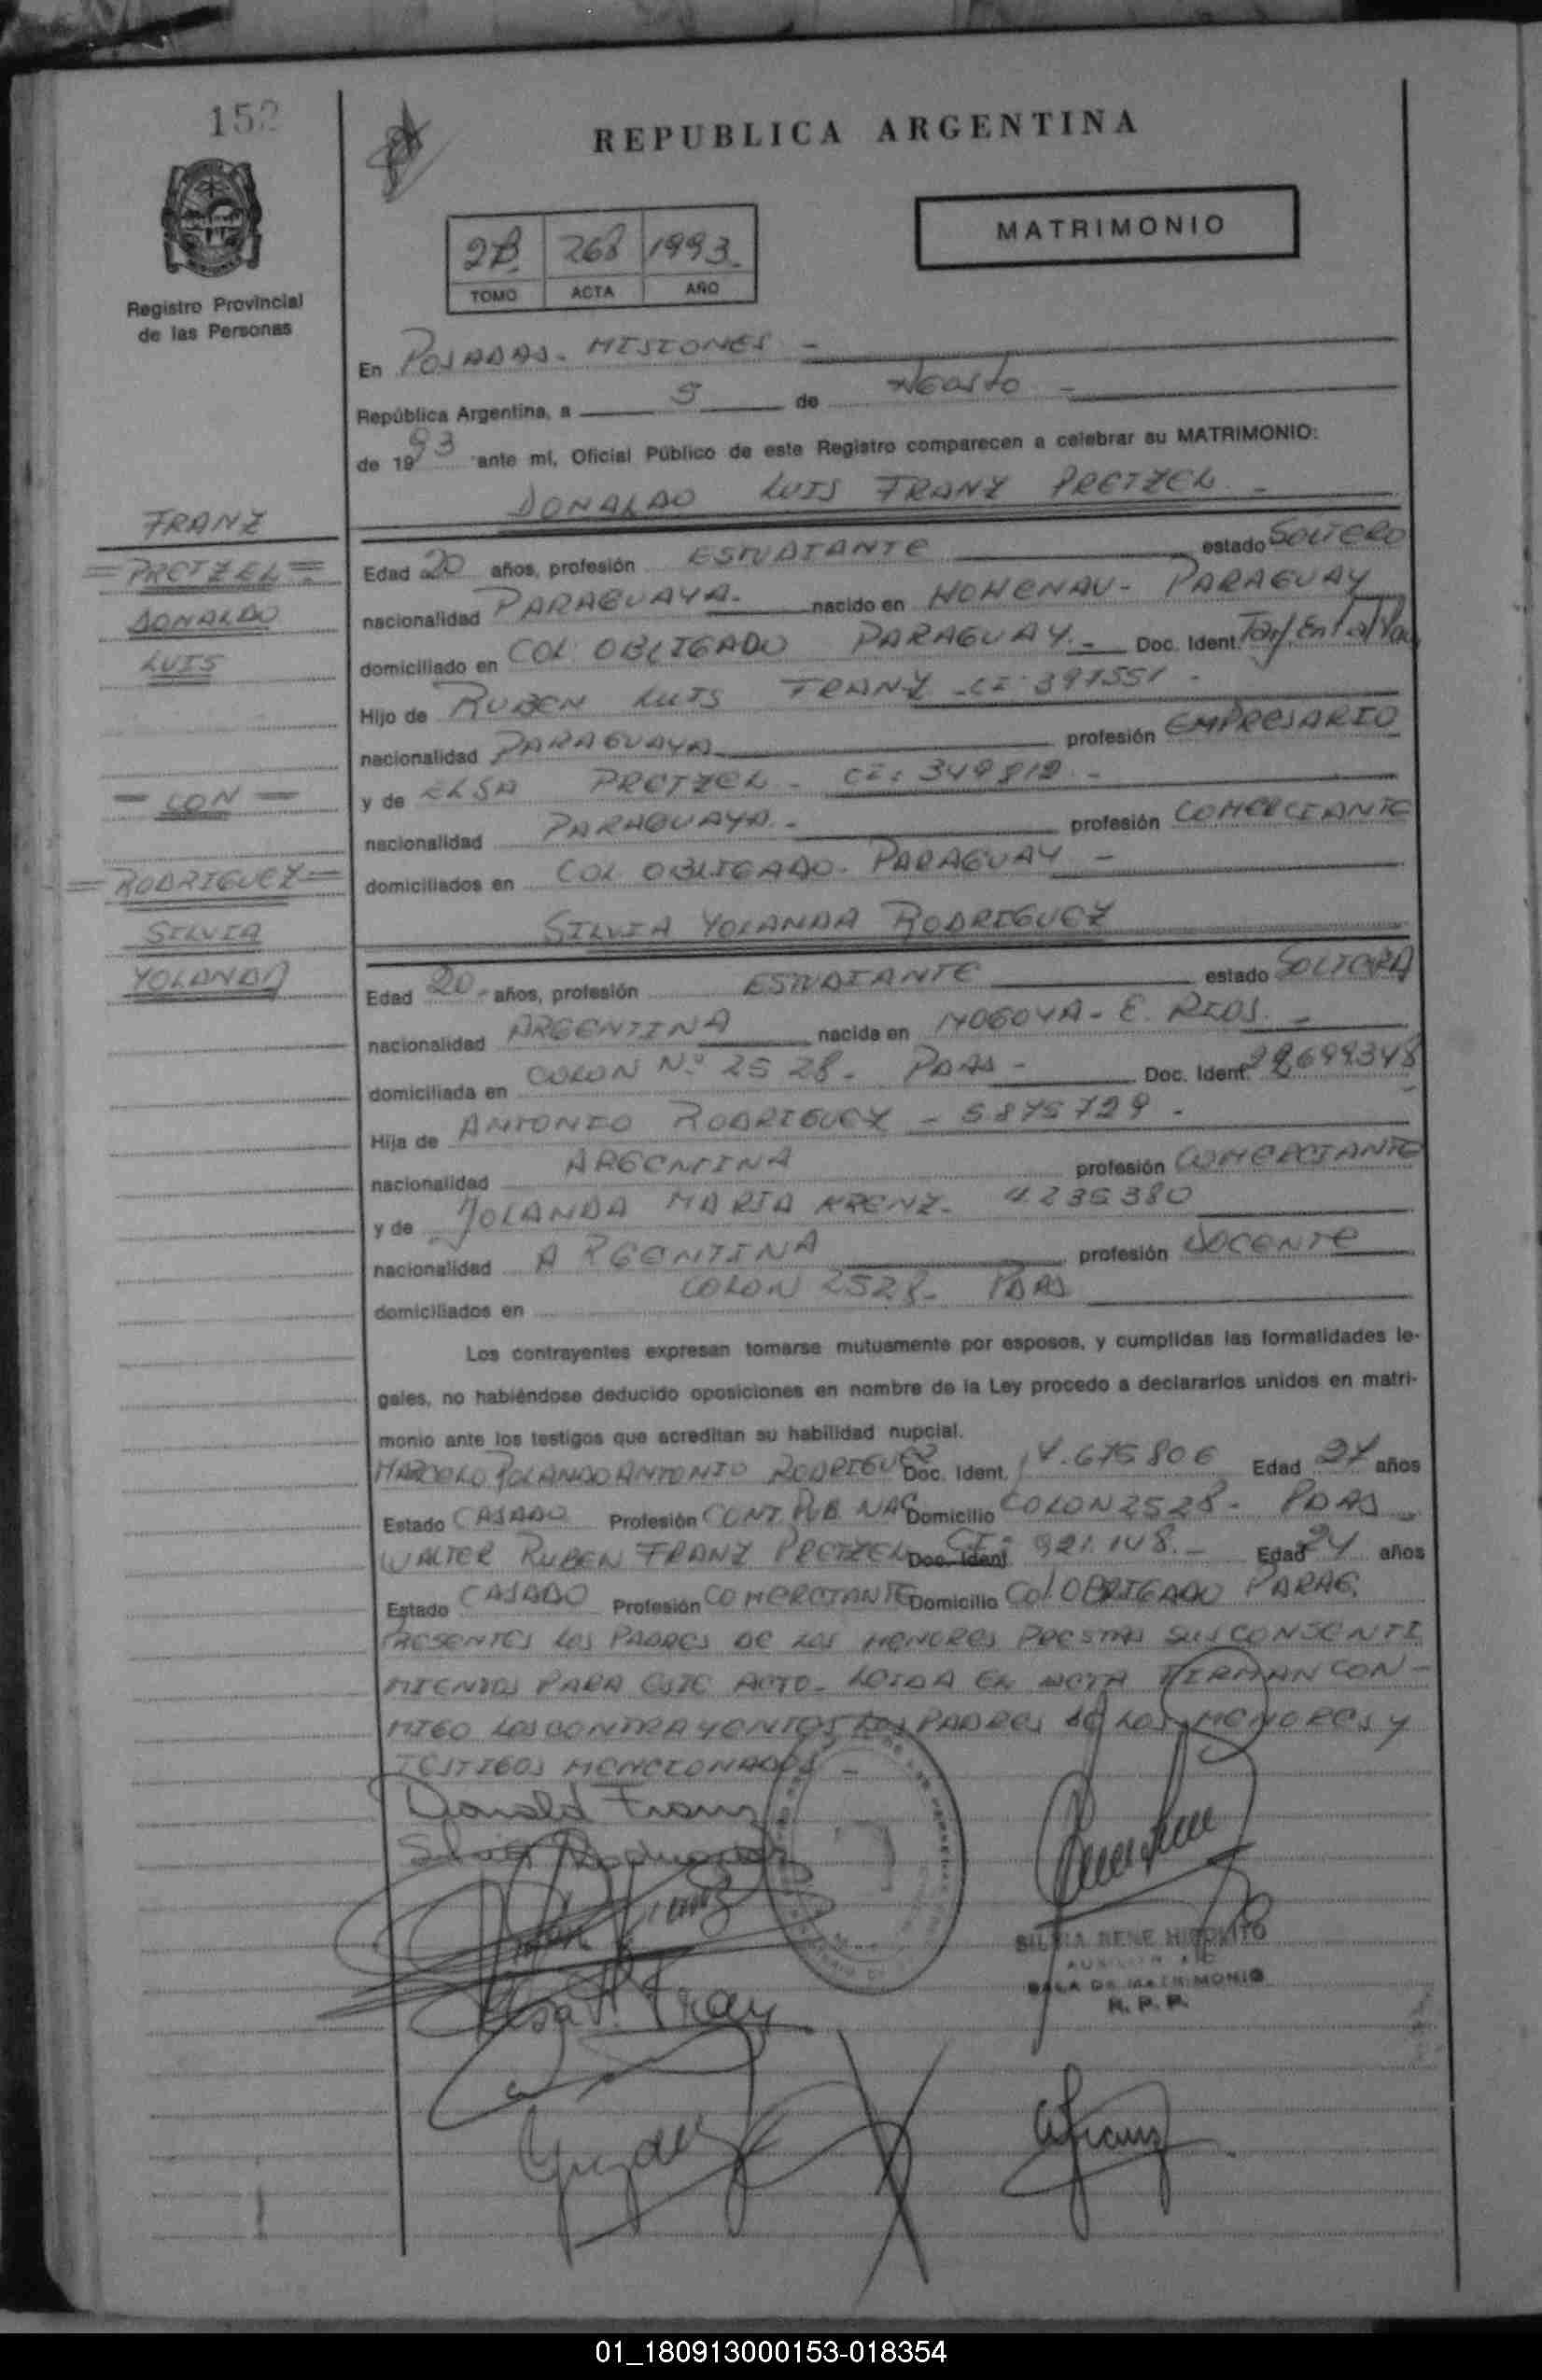 152
REPUBLICA ARGENTINA
MATRIMONIO
2B. 268 1993.
TOMO ACTA AÑO
Registro Provincial
de las Personas
En POSADAS. MISIONES -
República Argentina, a 5 de Agosto -
de 1993 ante mi, Oficial Público de este Registro comparecen a celebrar su MATRIMONIO:
DONALDO LUIS FRANZ PRETZEL -
FRANZ
= PRETZEL =
DONALDO
LUIS
- CON -
= RODRIGUEZ =
SILVIA
YOLANDA
Edad 20 años, profesión ESTUDIANTE estado SOLTERO
nacionalidad PARAGUAYA. nacido en HOHENAU - PARAGUAY
domiciliado en COL OBLIGADO PARAGUAY. - Doc. Ident.
Hijo de RUBEN LUIS FRANZ - CI: 397551 -
nacionalidad PARAGUAYA profesión EMPRESARIO
y de ELSA PRETZEL - CI: 349812 -
nacionalidad PARAGUAYA - profesión COMERCIANTE
domiciliados en COL OBLIGADO - PARAGUAY -
SILVIA YOLANDA RODRIGUEZ
Edad 20 - años, profesión ESTUDIANTE estado SOLTERA
nacionalidad ARGENTINA nacida en NOGOYA - E. RIOS. -
domiciliada en COLON Nº 2528. PDAS - Doc. Ident. 22.699.348
Hija de ANTONIO RODRIGUEZ - 5.875.729 -
nacionalidad ARGENTINA profesión COMERCIANTE
y de YOLANDA MARIA KRENZ - 4.235.380
nacionalidad ARGENTINA profesión DOCENTE
domiciliados en COLON 2528. PDAS
Los contrayentes expresan tomarse mutuamente por esposos, y cumplidas las formalidades le-
gales, no habiéndose deducido oposiciones en nombre de la Ley procedo a declararlos unidos en matri-
monio ante los testigos que acreditan su habilidad nupcial.
MARCELO ROLANDO ANTONIO RODRIGUEZ Doc. Ident. 17.675.806 Edad 27 años
Estado CASADO Profesión CONT. PUB. NAC Domicilio COLON 2528 - PDAS
WALTER RUBEN FRANZ PRETZEL Doc. Ident CI: 921.148. - Edad 24 años
Estado CASADO Profesión COMERCIANTE Domicilio Col. OBLIGADO PARAG.
PRESENTES LOS PADRES DE LOS MENORES PRESTAN SUS CONSENTI
MIENTOS PARA ESTE ACTO - LEIDA EL ACTA FIRMAN CON-
MIGO LOS CONTRAYENTES LOS PADRES DE LOS MENORES Y
TESTIGOS MENCIONADOS -
Donald Franz
Silvia Rodriguez
SILVIA RENE HIPOLITO
SALA DE MATRIMONIO
R. P. P.
01_180913000153-018354